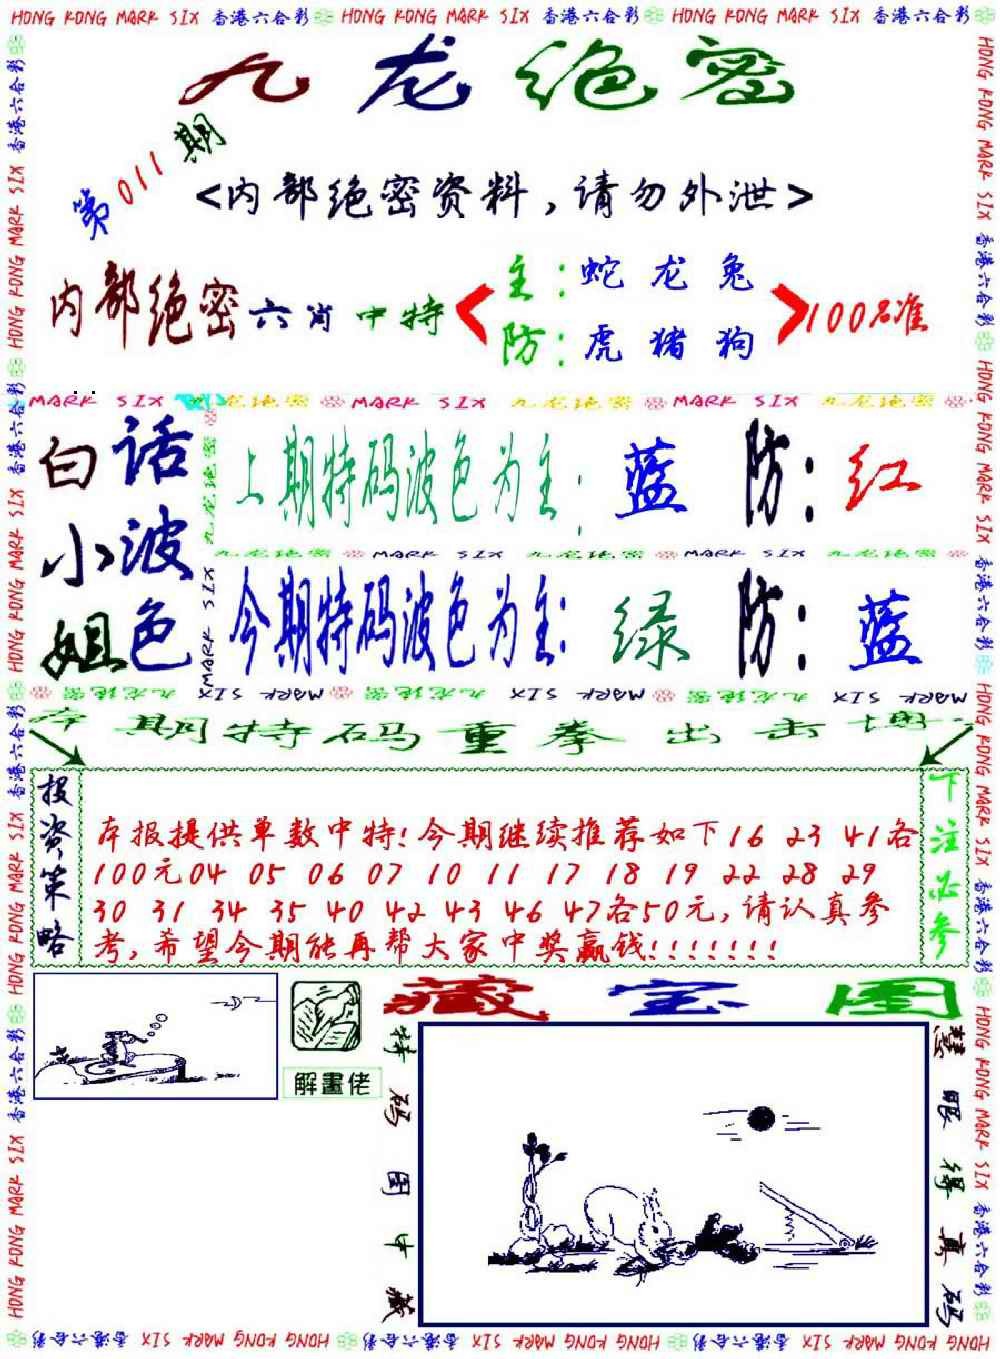 HONG KONG MARK SIX 香港六合彩 HONG KONG MARK SIX 香港六合彩 HONG KONG MARK SIX 香港六合彩
九龙绝密
第011期
<内部绝密资料，请勿外泄>
内部绝密六肖中特
主：蛇 龙 兔
防：虎 猪 狗
100%准
MARK SIX 九龙绝密 MARK SIX 九龙绝密 MARK SIX 九龙绝密
白小姐
话波色
上期特码波色为主：蓝 防：红
九龙绝密 MARK SIX 九龙绝密 MARK SIX 九龙绝密
今期特码波色为主：绿 防：蓝
九龙绝密 MARK SIX 九龙绝密 MARK SIX 九龙绝密 MARK SIX
本期特码重拳出击
投资策略
本报提供单数中特!今期继续推荐如下16 23 41各
100元04 05 06 07 10 11 17 18 19 22 28 29
30 31 34 35 40 42 43 46 47各50元,请认真参
考,希望今期能再帮大家中奖赢钱!!!!!!!
下注必参
解畫佬
藏宝图
特码图中藏
慧眼得真码
HONG KONG MARK SIX 香港六合彩 HONG KONG MARK SIX 香港六合彩 HONG KONG MARK SIX 香港六合彩